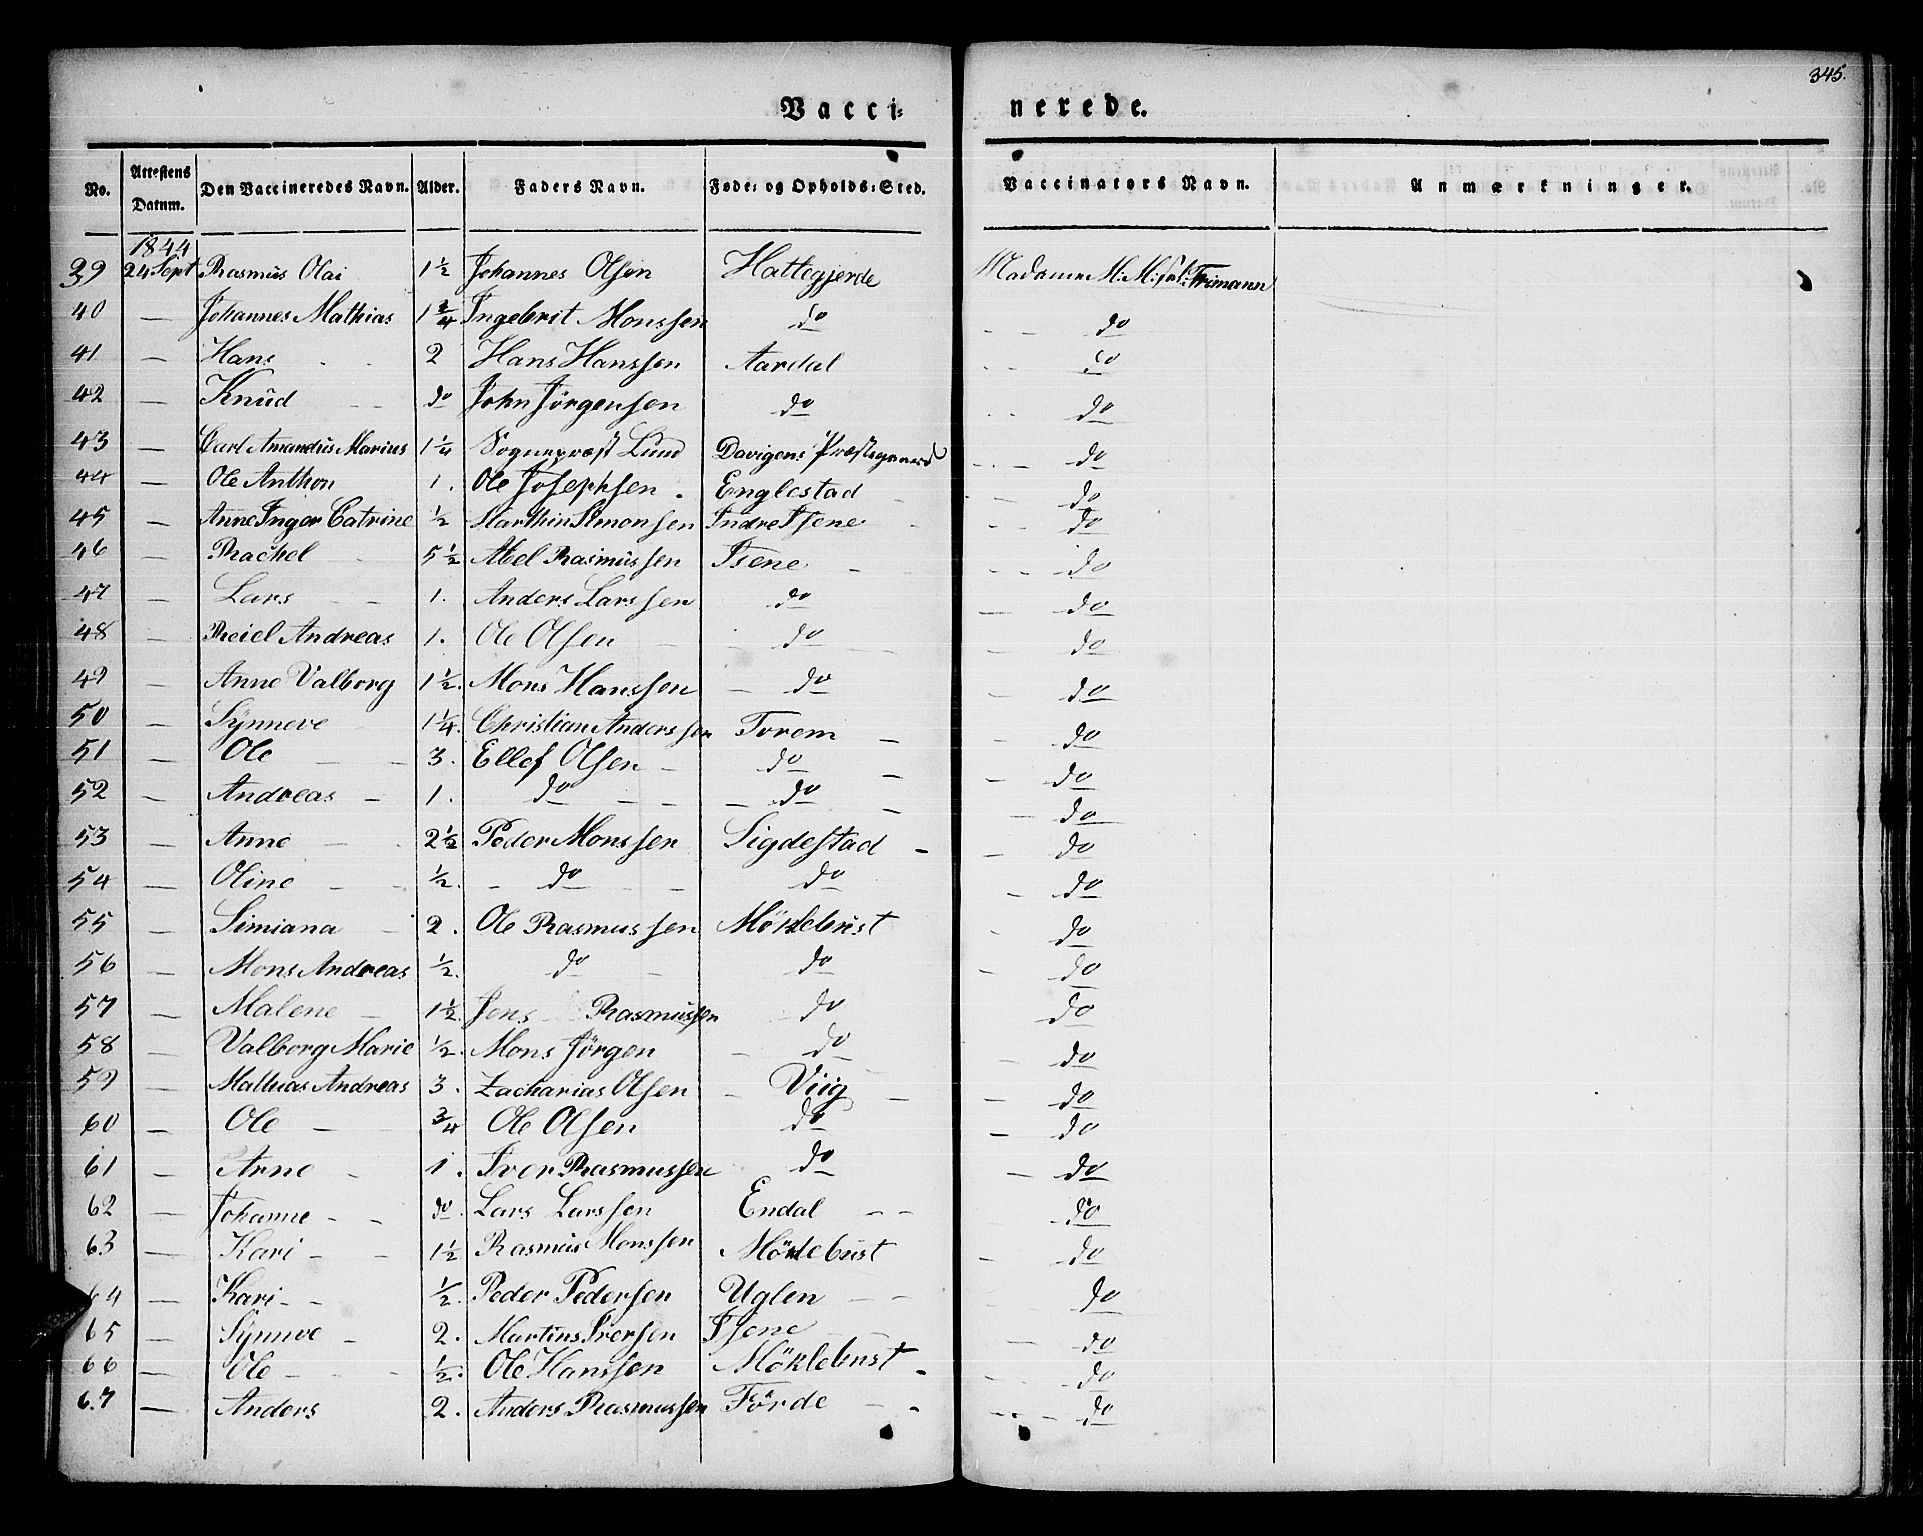 345.
Vacci= nerede.
No. Attestens Datum. Den Vaccineredes Navn. Alder. Faders Navn. Føde= og Opholds=Sted. Vaccinators Navn. Anmærkninger.
1844
39 24 Sept Rasmus Olai 1½ Johannes Olsen Hattegjerde Madame M: M: Frimann
40 — Johannes Mathias 1¾ Ingebrit Monssen do - - do
41 — Hans 2 Hans Hanssen Aardal - - do
42 — Knud do John Jörgensen do - - do
43 — Carl Amandus Marius 1¼ Sognepræst Lund Davigens Præstegaard - - do
44 — Ole Anthon 1. Ole Josephsen Englestad - - do
45 — Anne Inger Catrine ½ Marthin Simonsen Indre Isene - - do
46 — Rachel 5½ Abel Rasmussen Isene - - do
47 — Lars 1. Anders Larssen do — do
48 — Reiel Andreas 1. Ole Olsen do — do
49 — Anne Valborg 1½. Mons Hanssen do — do
50 — Synneve 1¼. Christian Anderssen Torem - do
51 — Ole 3. Ellef Olsen do — do
52 — Andreas 1. do do — do
53 — Anne 2½ Peder Monssen Sigdestad — do
54 — Oline ½. do do - do
55 — Simiana 2. Ole Rasmussen Möklebust - do
56 — Mons Andreas ½. do do - do
57 — Malene 1½. Jens Rasmussen do do
58 — Valborg Marie ½. Mons Jörgen do — do
59 — Mathias Andreas 3. Zacharias Olsen Viig — do
60 — Ole ¾ Ole Olsen do — do
61 — Anne 1. Iver Rasmussen do — do
62 — Johanne do. Lars Larssen Endal do
63 — Kari 1½ Rasmus Monssen Möklebust do
64 — Kari ½. Peder Pedersen Uglen do
65 — Synneve 2. Martins Iversen Isene — do
66 — Ole ½. Ole Hanssen Möklebust — do
67 — Anders 2. Anders Rasmussen Förde — do